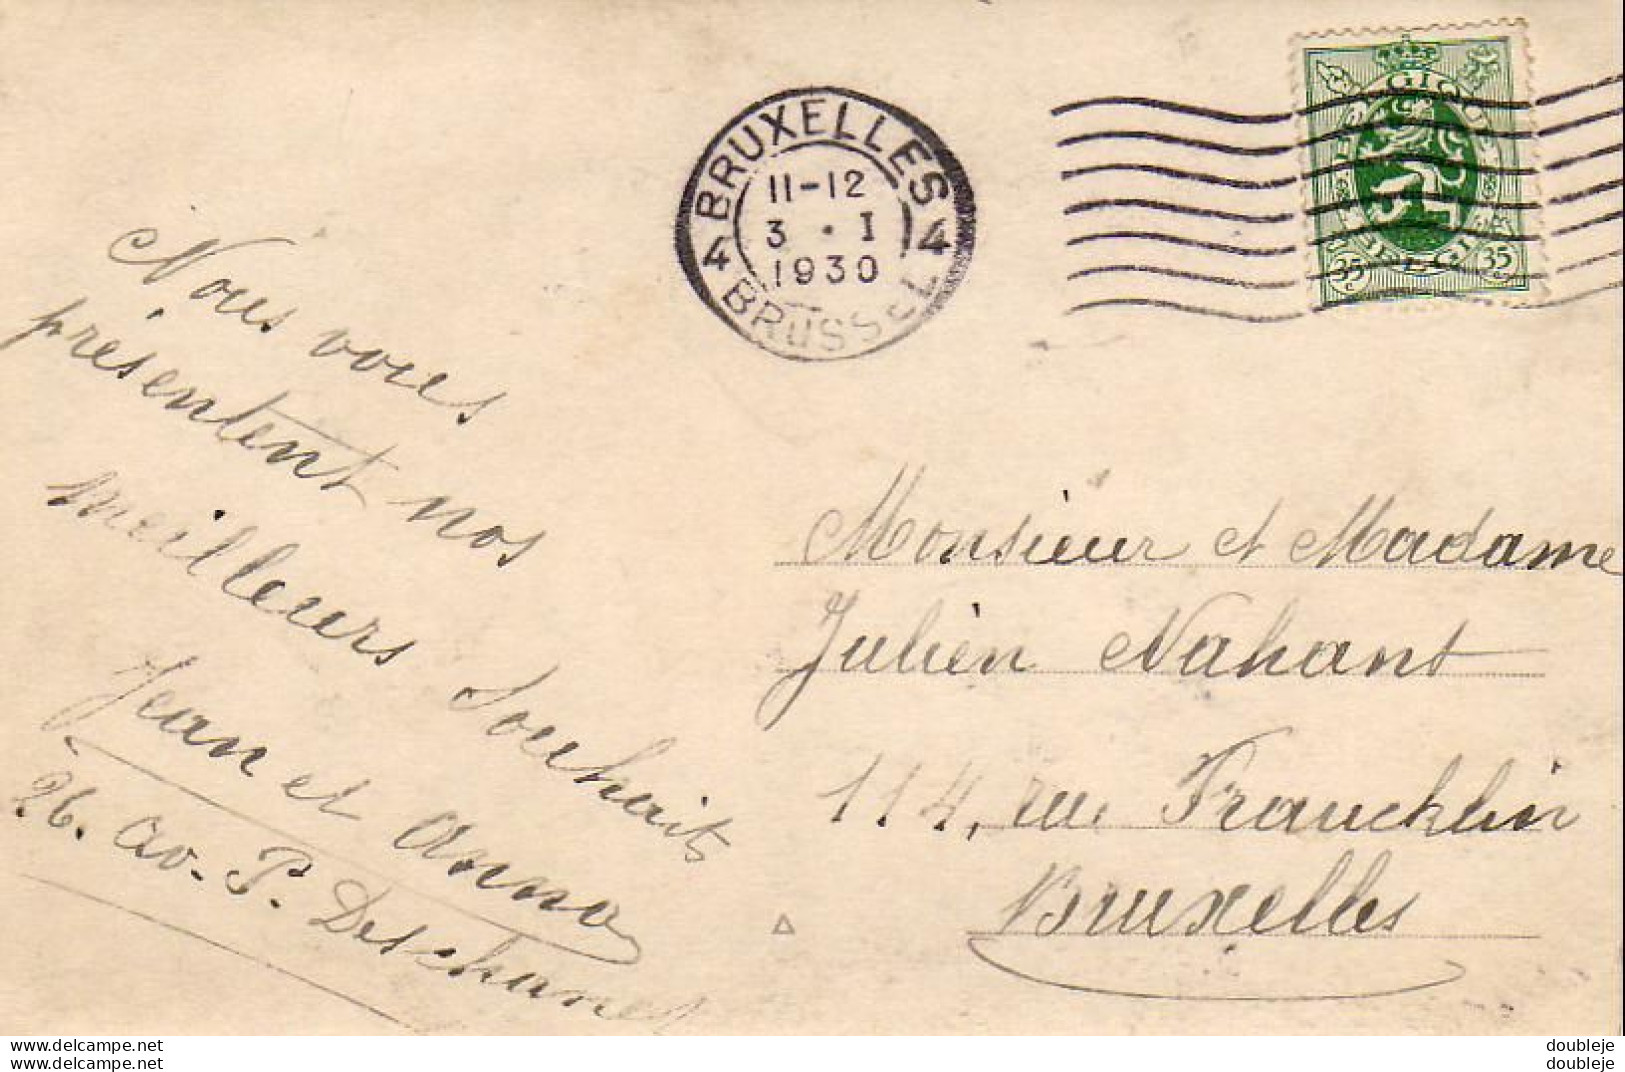 BRUXELLES
11-12
3 . I
1930
4 4
BRUSSEL
BELGIQUE
BELGIE
35 c 35 c
Nous vous
présentent nos
meilleurs souhaits
Jean et Anna
26. av. P. Deschanel
Monsieur et Madame
Julien Nahant
114, rue Francklin
Bruxelles
www.delcampe.net
doubleje
www.delcampe.net
doubleje